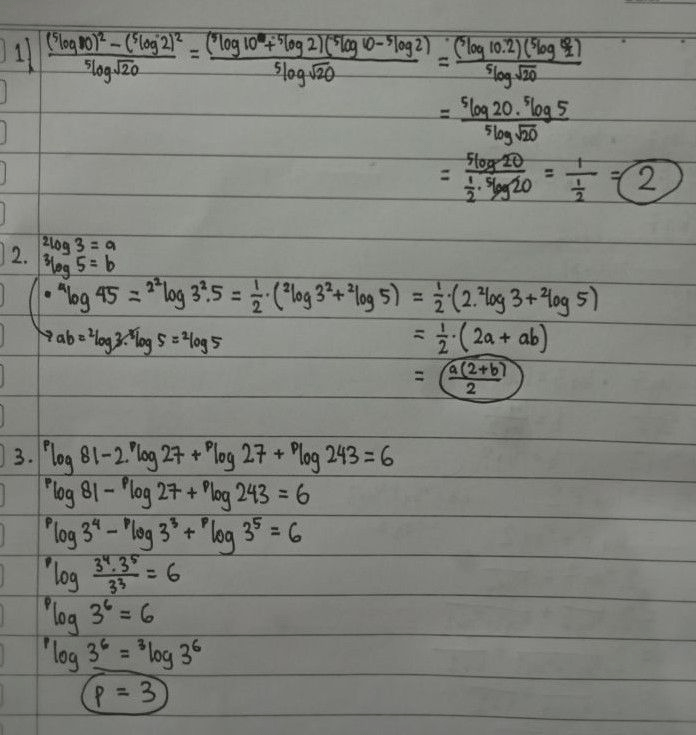 1] (⁵log 10)² − (⁵log 2)² / ⁵log √20 = (⁵log 10 + ⁵log 2)(⁵log 10 − ⁵log 2) / ⁵log √20 = (⁵log 10.2)(⁵log 10/2) / ⁵log √20
= ⁵log 20 . ⁵log 5 / ⁵log √20
= ⁵log 20 / ½ . ⁵log 20 = 1 / ½ = 2
2. ²log 3 = a
³log 5 = b
• ⁴log 45 = ²²log 3².5 = ½ . (²log 3² + ²log 5) = ½ . (2.²log 3 + ²log 5)
→ ab = ²log 3 . ³log 5 = ²log 5 = ½ . (2a + ab)
= a(2+b) / 2
3. ᵖlog 81 − 2.ᵖlog 27 + ᵖlog 27 + ᵖlog 243 = 6
ᵖlog 81 − ᵖlog 27 + ᵖlog 243 = 6
ᵖlog 3⁴ − ᵖlog 3³ + ᵖlog 3⁵ = 6
ᵖlog 3⁴.3⁵ / 3³ = 6
ᵖlog 3⁶ = 6
ᵖlog 3⁶ = ³log 3⁶
p = 3